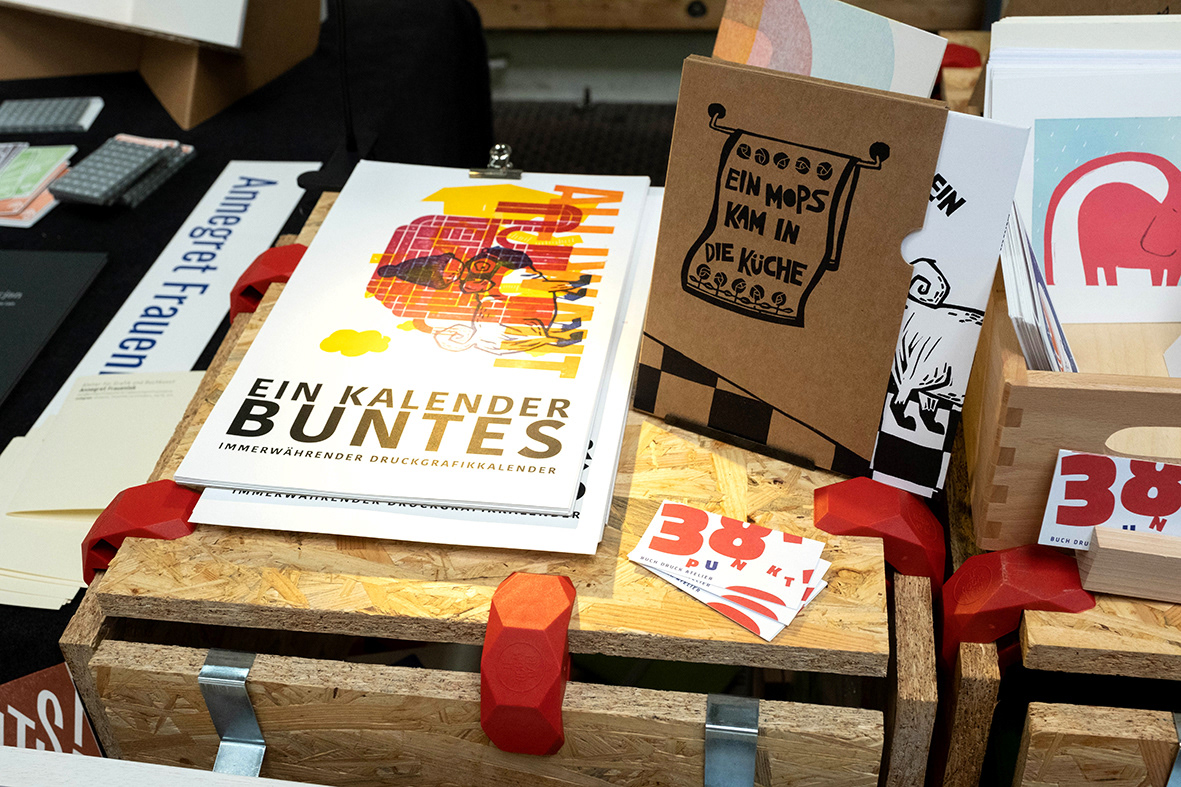 Annegret Frauen
EIN KALENDER
BUNTES
IMMERWÄHRENDER DRUCKGRAFIKKALENDER
IMMERWÄHRENDER DRUCKGRAFIKKALENDER
EIN MOPS
KAM IN
DIE KÜCHE
EIN
38
PUNKT!
BUCH DRUCK ATELIER
38
ÜN
BUCH DRUCK